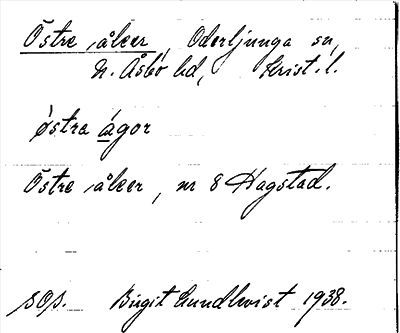 Östre åker, Oderljunga sn,
N. Åsbo hd, Krist. l.
östra ágor
Östre åker, nr 8 Hagstad.
sop. Birgit Lundkvist 1938.